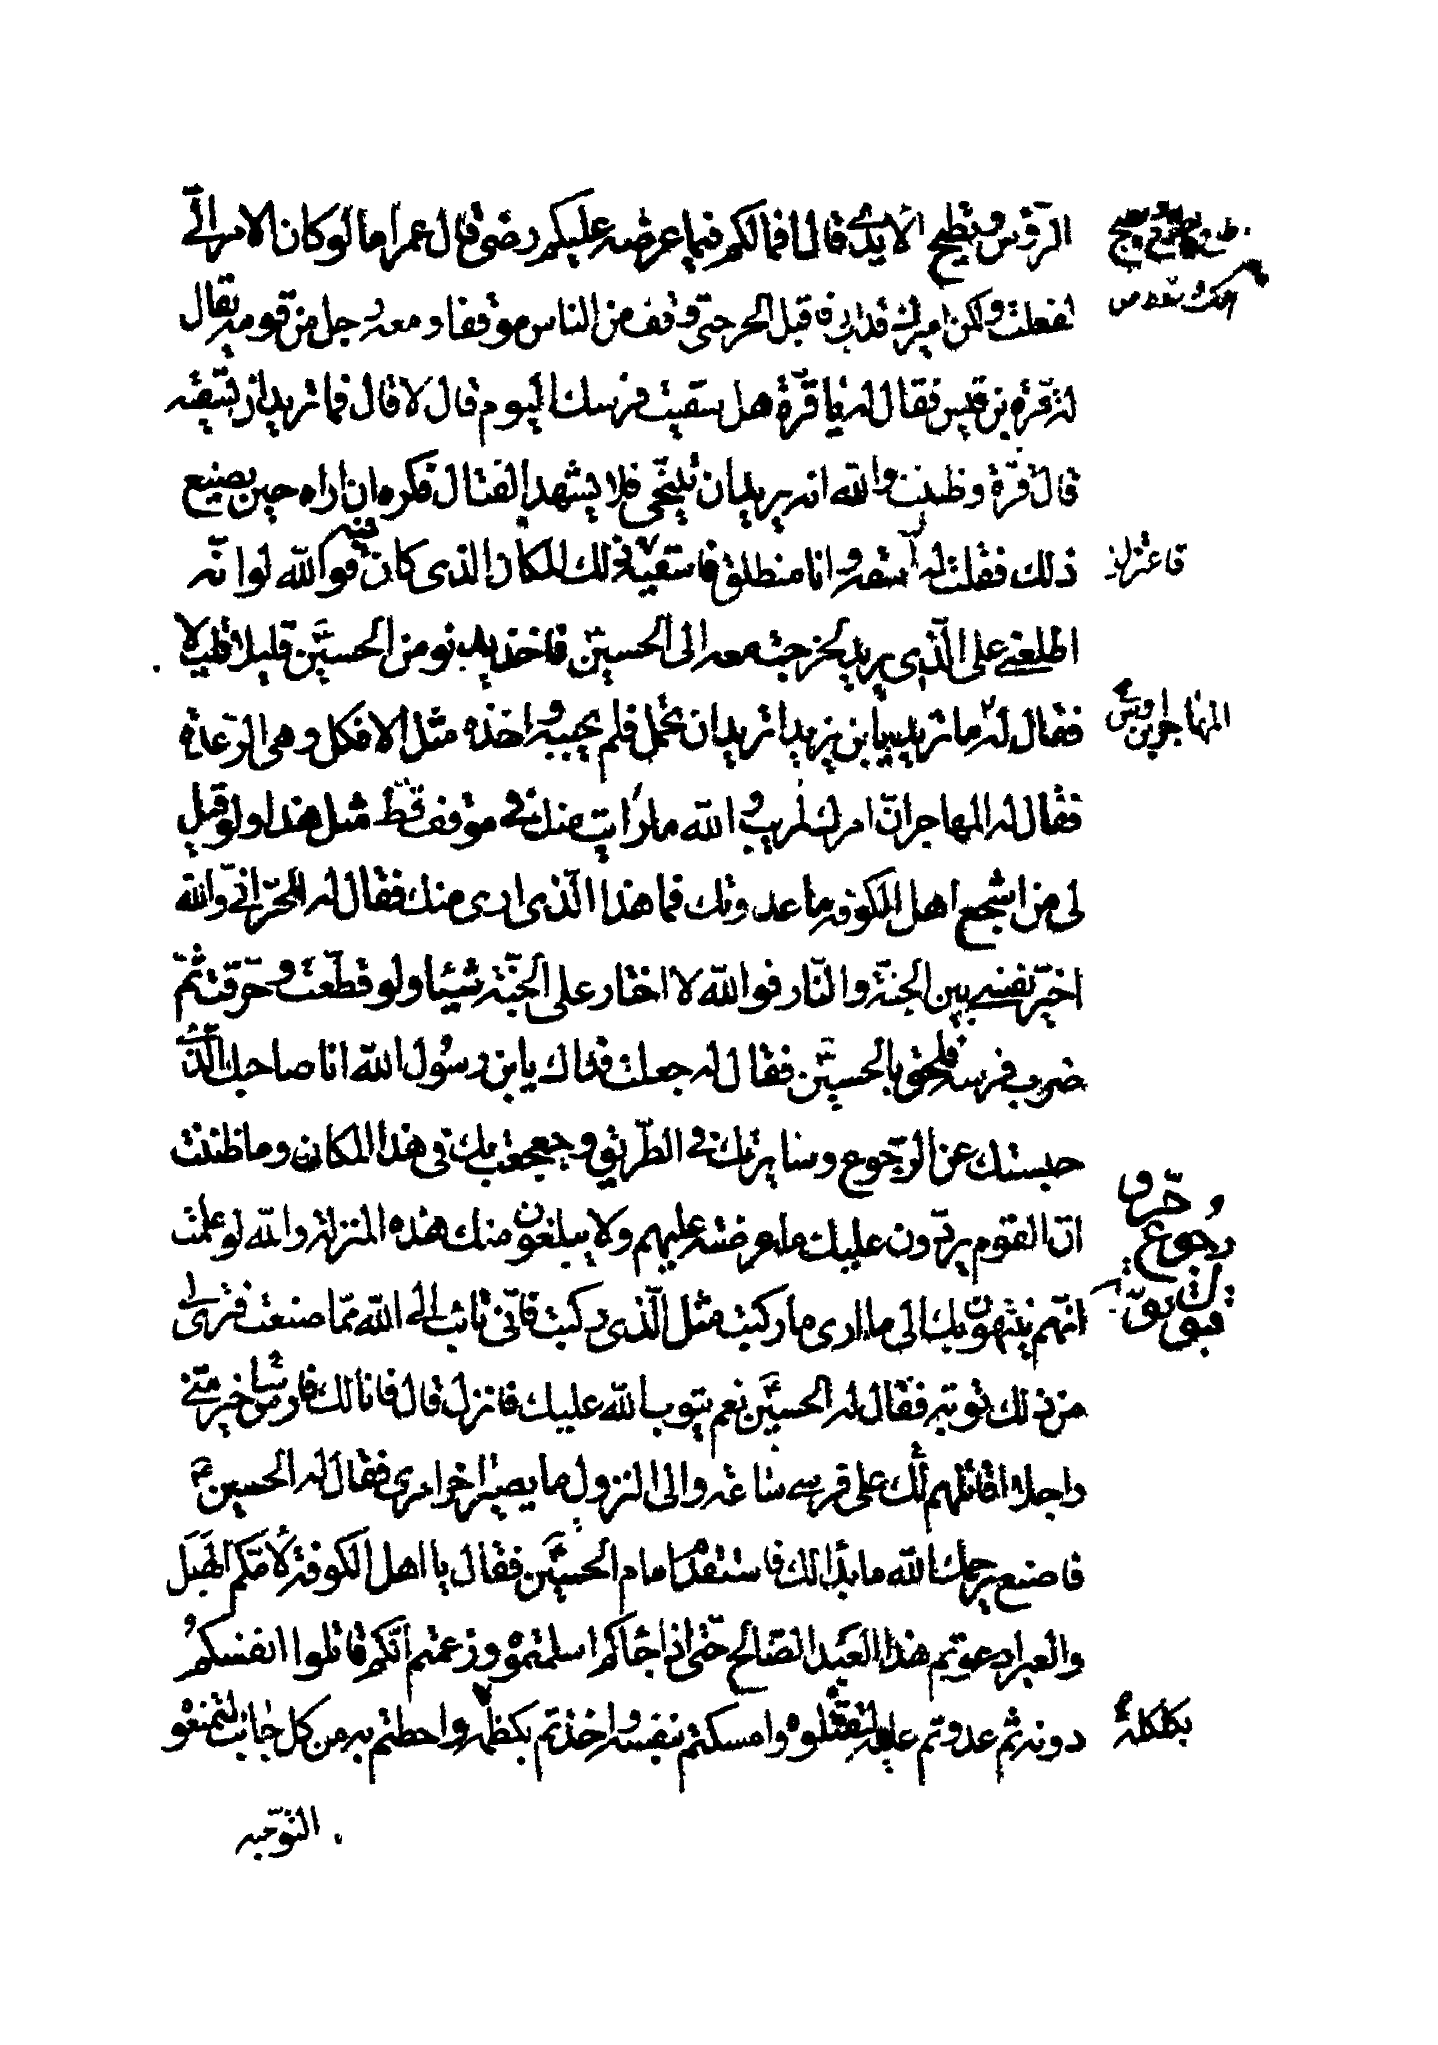 الرؤس وتطيح الأيدي قال افما لكم فيما عرضه عليكم رضى قال عمر اما لو كان الامر الي
لفعلت ولكن اميرك قد ابى فاقبل الحر حتى وقف من الناس موقفا ومعه رجل من قومه يقال
له قرّة بن قيس فقال له يا قرّة هل سقيت فرسك اليوم قال لا قال فما تريد ان تسقيه
قال قرّة وظننت والله انه يريد ان يتنحّى فلا يشهد القتال فكره ان اراه حين يصنع
ذلك فقلت له لم اسقه وانا منطلق فاسقيه
فاعتزل
ذلك المكان الذى كان فيه فوالله لو انّه
اطلعني على الّذي يريد لخرجت معه الى الحسين فاخذ يدنو من الحسين قليلا قليلا
المهاجر بن اوس
فقال له ما تريد يا بن يزيد اتريد ان تحمل فلم يجبه واخذه مثل الافكل وهى الرّعدة
فقال له المهاجر انّ امرك لمريب والله ما رايت منك في موقف قطّ مثل هذا ولو قيل
لى من اشجع اهل الكوفة ما عدوتك فما هذا الّذى ارى منك فقال له الحرّ انّي والله
اخيّر نفسي بين الجنّة والنّار فوالله لا اختار على الجنّة شيئا ولو قطّعت وحرّقت ثمّ
ضرب فرسه فلحق بالحسين فقال له جعلت فداك يا بن رسول الله انا صاحبك الّذي
حبستك عن الرّجوع وسايرتك في الطّريق وجعجعت بك فى هذا المكان وما ظننت
حرّ و
رجوع
انّ القوم يردّون عليك ما عرضته عليهم ولا يبلغون منك هذه المنزلة والله لو علمت
انّهم ينتهون بك الى ما ارى ما ركبت مثل الّذى ركبت فانّى تائب الى الله ممّا صنعت فترى لى
من ذلك توبة فقال له الحسين نعم يتوب الله عليك فانزل قال فانا لك فارسا خير منّي
راجلا اقاتلهم لك على فرسي ساعة والى النزول ما يصير اخر امرى فقال له الحسين
فاصنع يرحمك الله ما بدا لك فاستقدم امام الحسين فقال يا اهل الكوفة لامّكم الهبل
والعبر ادعوتم هذا العبد الصّالح حتّى اذا جائكم اسلمتموه وزعمتم انّكم قاتلوا انفسكم
دونه ثم عدوتم عليه لتقتلوه وامسكتم بنفسه واخذتم بكظمه واحطتم به من كل جانب لتمنعوه
بكلكله
التوجّه